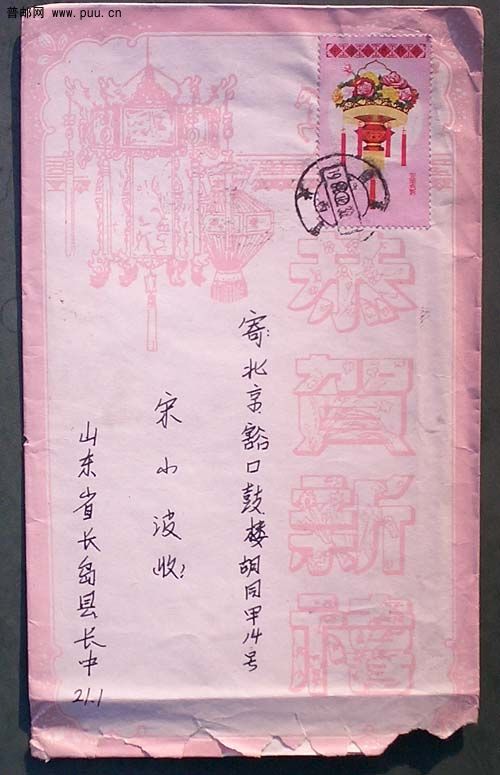 普邮网 www.puu.cn
恭贺新禧
寄:北京豁口鼓楼胡同甲14号
宋小波收
山东省长岛县长中
21.1